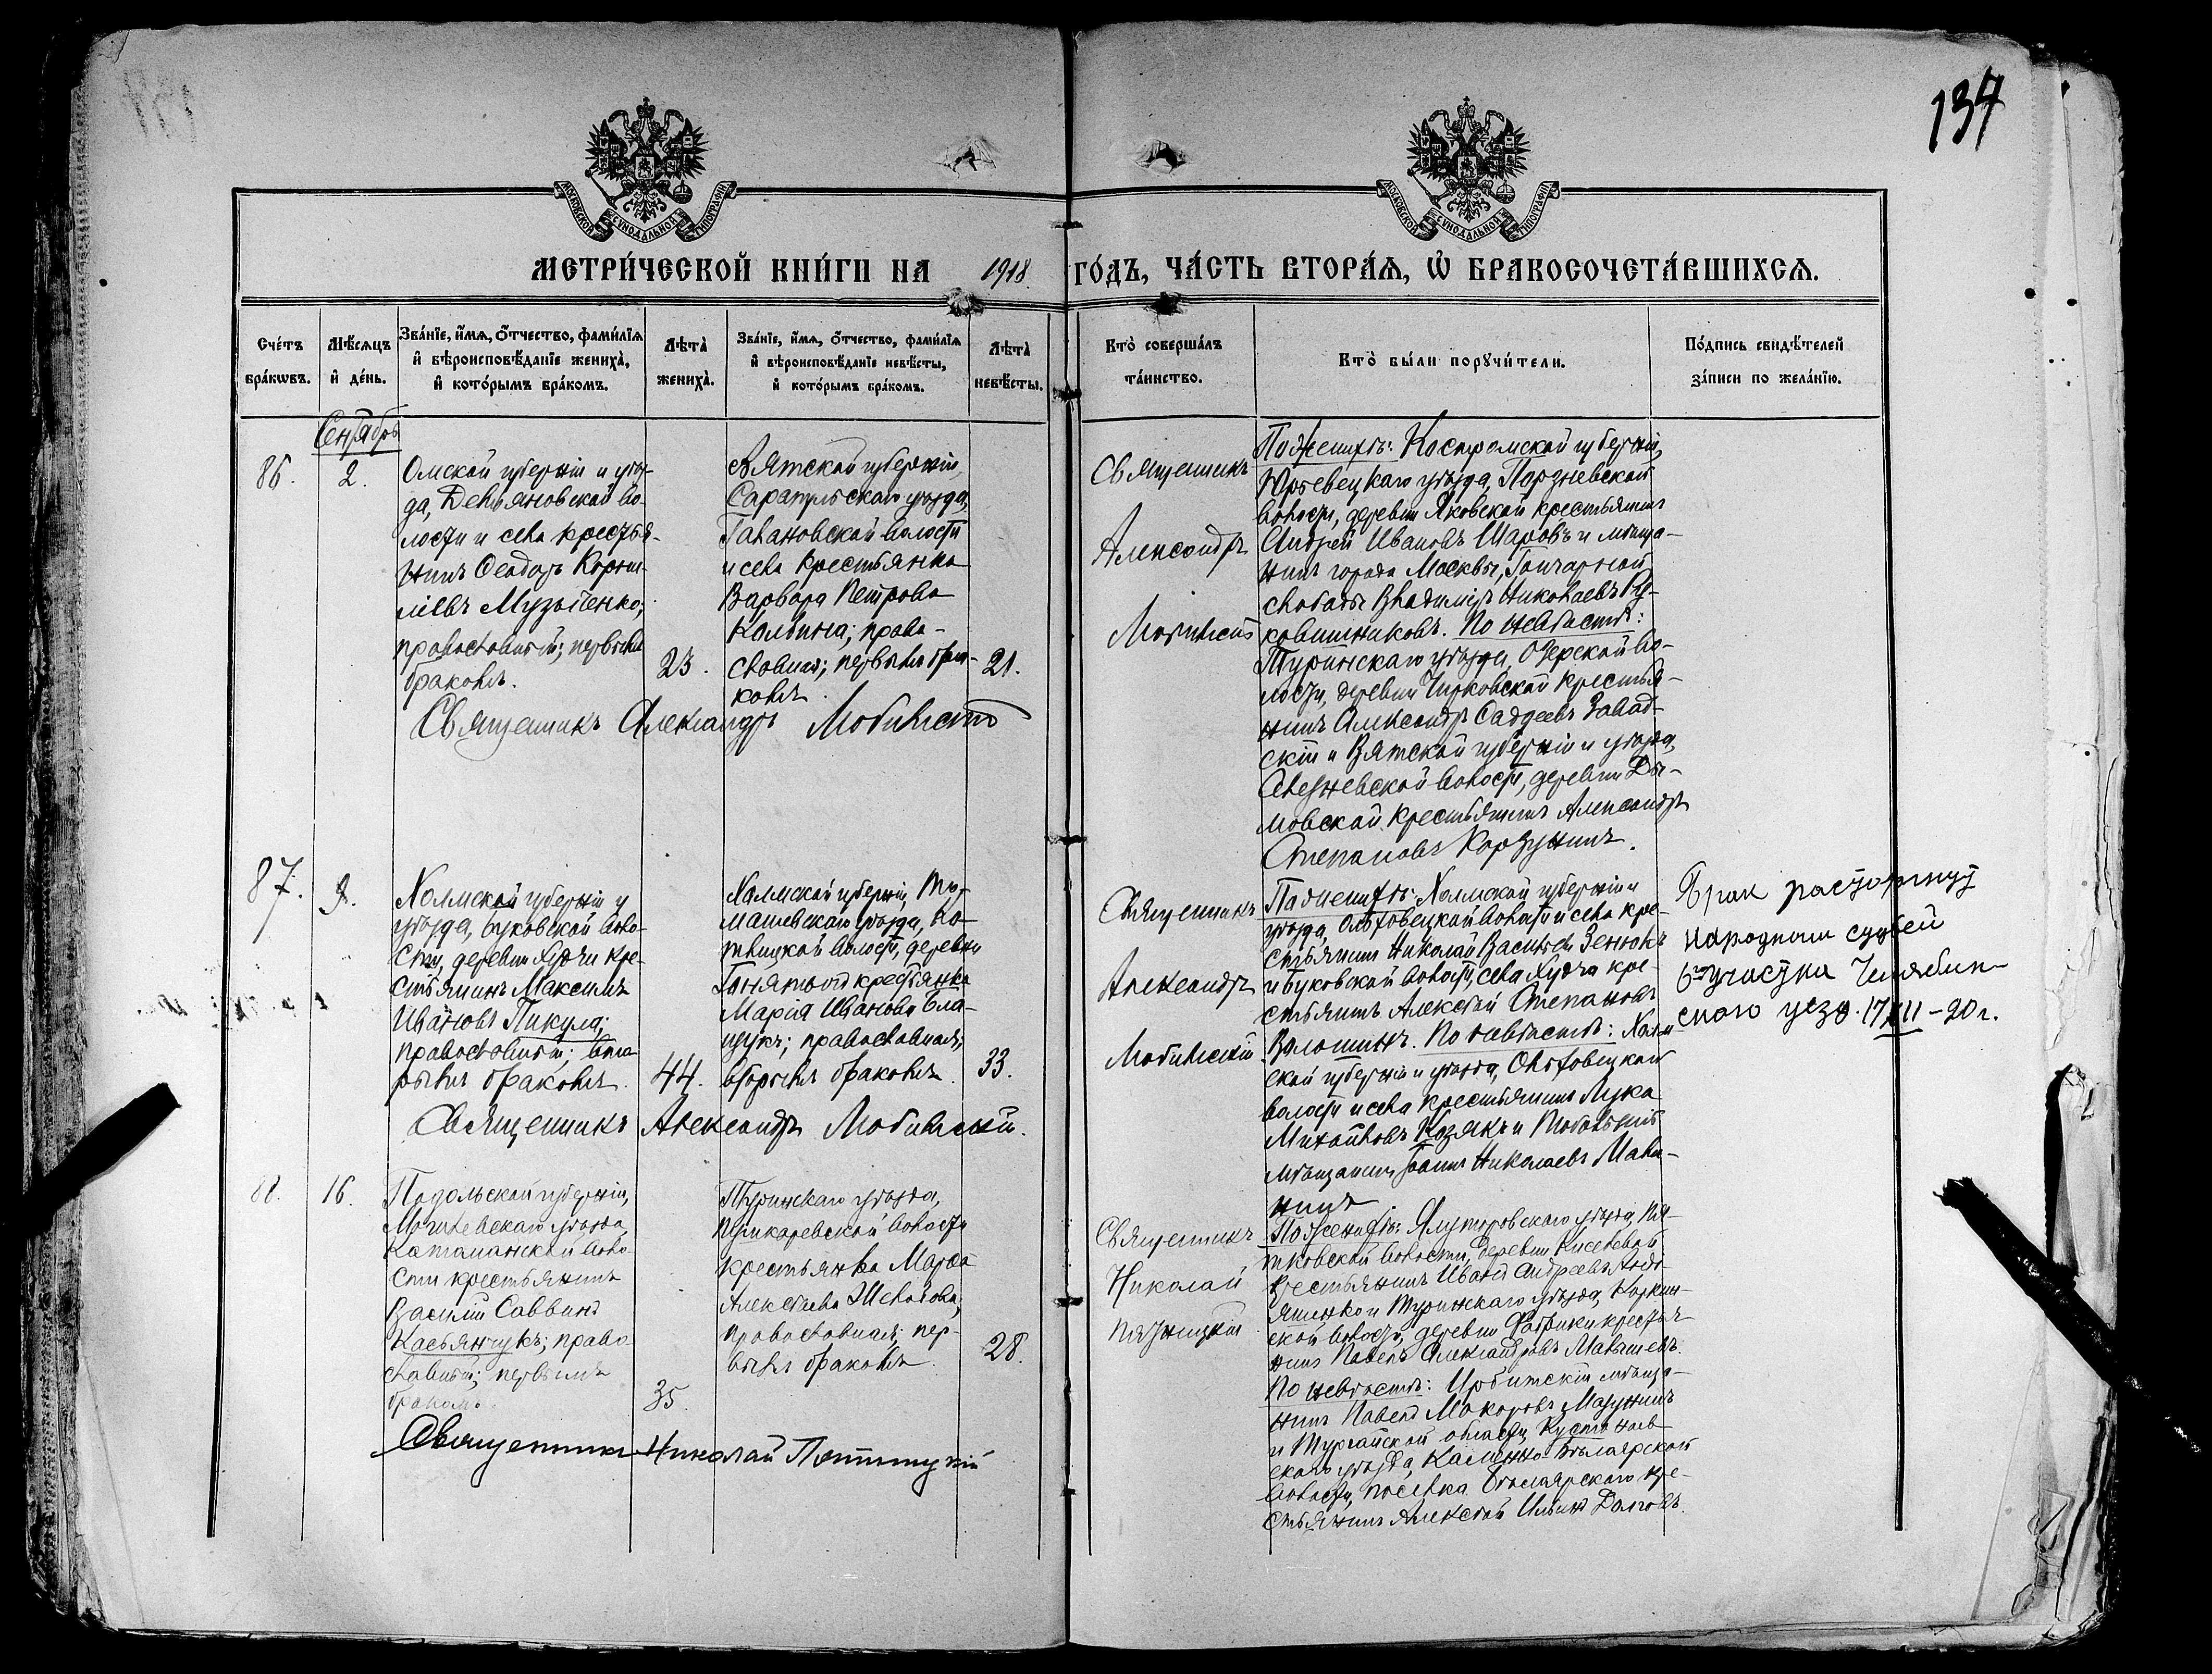 134
МОСКОВСКОЙ СѴНОДАЛЬНОЙ ТИПОГРАФІИ
МОСКОВСКОЙ СѴНОДАЛЬНОЙ ТИПОГРАФІИ
МЕТРИ́ЧЕСКОЙ КНИ́ГИ НА 1918. ГО́ДЪ, ЧА́СТЬ ВТОРА́Ѧ, Ѽ БРАКОСОЧЕТА́ВШИХСѦ.
Сче́тъ
бра́кѡвъ.
Мѣ́сяцъ
и҆ де́нь.
Зва́нїе, и҆́мѧ, ѻ҆́тчество, фами́лїѧ
и҆ вѣроисповѣ́данїе жениха̀,
и҆ кото́рымъ бра́комъ.
Лѣта̀
жениха̀.
Зва́нїе, и҆́мѧ, ѻ҆́тчество, фами́лїѧ
и҆ вѣроисповѣ́данїе невѣ́сты,
и҆ кото́рымъ бра́комъ.
Лѣта̀
невѣ́сты.
Кто̀ соверша́лъ
та́инство.
Кто̀ бы́ли порꙋчи́тели.
По́дпись свидѣ́телей
за́писи по жела́нїю.
Сентябрь
86.
2.
Омской губерніи и уѣз-
да, Демьяновской во-
лости и села крестья-
нинъ Ѳеодоръ Корни-
ліевъ Музыченко;
православный; первымъ
бракомъ.
23.
Вятской губерніи,
Сарапульскаго уѣзда,
Галановской волости
и села крестьянка
Варвара Петрова
Колбина; право-
славная; первымъ бра-
комъ
21.
Священникъ Александръ
Священникъ
Александръ
По женихѣ: Костромской губерніи,
Юрьевецкаго уѣзда, Порзневской
волости, деревни Яковской крестьянинъ
Андрей Ивановъ Шаровъ и мѣща-
нинъ города Москвы, Гончарной
слободы Владиміръ Николаевъ Ру-
кавишниковъ. По невѣстѣ:
Туринскаго уѣзда, Озерской во-
лости, деревни Чирковской крестья-
нинъ Александръ Садеевъ Завад-
скій и Вятской губерніи и уѣзда,
волости, деревни Ды-
мовской крестьянинъ Александръ
Степановъ Корзунинъ.
87.
9.
Холмской губерніи и
уѣзда, Буковской воло-
сти, деревни Худчи кре-
стьянинъ Максимъ
Ивановъ Пикула;
православный; вто-
рымъ бракомъ.
44.
Холмской губерніи, То-
машевскаго уѣзда, Ко-
тлицкой волости, деревни
крестьянка
Марія Иванова Вла-
щукъ; православная;
вторымъ бракомъ.
33.
Священникъ Александръ
Священникъ
Александръ
По женихѣ: Холмской губерніи и
уѣзда, Ольховецкой волости и села кре-
стьянинъ Николай Васильевъ Зенюкъ
и Буковской волости, села Худча кре-
стьянинъ Алексѣй Степановъ
Волошинъ. По невѣстѣ: Холм-
ской губерніи и уѣзда, Ольховецкой
волости и села крестьянинъ Лука
Михайловъ Козякъ и Тобольскій
мѣщанинъ Іоаннъ Николаевъ Мали-
нинъ
Брак расторгнут
народным судьей
6го участка Челябин-
ского уезд. 17/XII-20 г.
88.
16.
Подольской губерніи,
Могилевскаго уѣзда,
Каташанской воло-
сти крестьянинъ
Василій Саввинъ
Касьянчукъ; право-
славный; первымъ
бракомъ.
35.
Туринскаго уѣзда,
волости
крестьянка Марѳа
Алексѣева Шевалова;
православная; пер-
вымъ бракомъ.
28.
Священникъ Николай Пятницкій
Священникъ
Николай
Пятницкій
По женихѣ: Ялуторовскаго уѣзда, Пя-
тковской волости, деревни Киселевой
крестьянинъ Иванъ Андреевъ
и Туринскаго уѣзда, Коркин-
ской волости, деревни Фабрики крестья-
нинъ Павелъ Александровъ Малышевъ.
По невѣстѣ: Ирбитскій мѣща-
нинъ Павелъ Макаровъ Мазунинъ
и Тургайской области, Кустанай-
скаго уѣзда,
волости, поселка кре-
стьянинъ Алексѣй Ильинъ Долговъ.